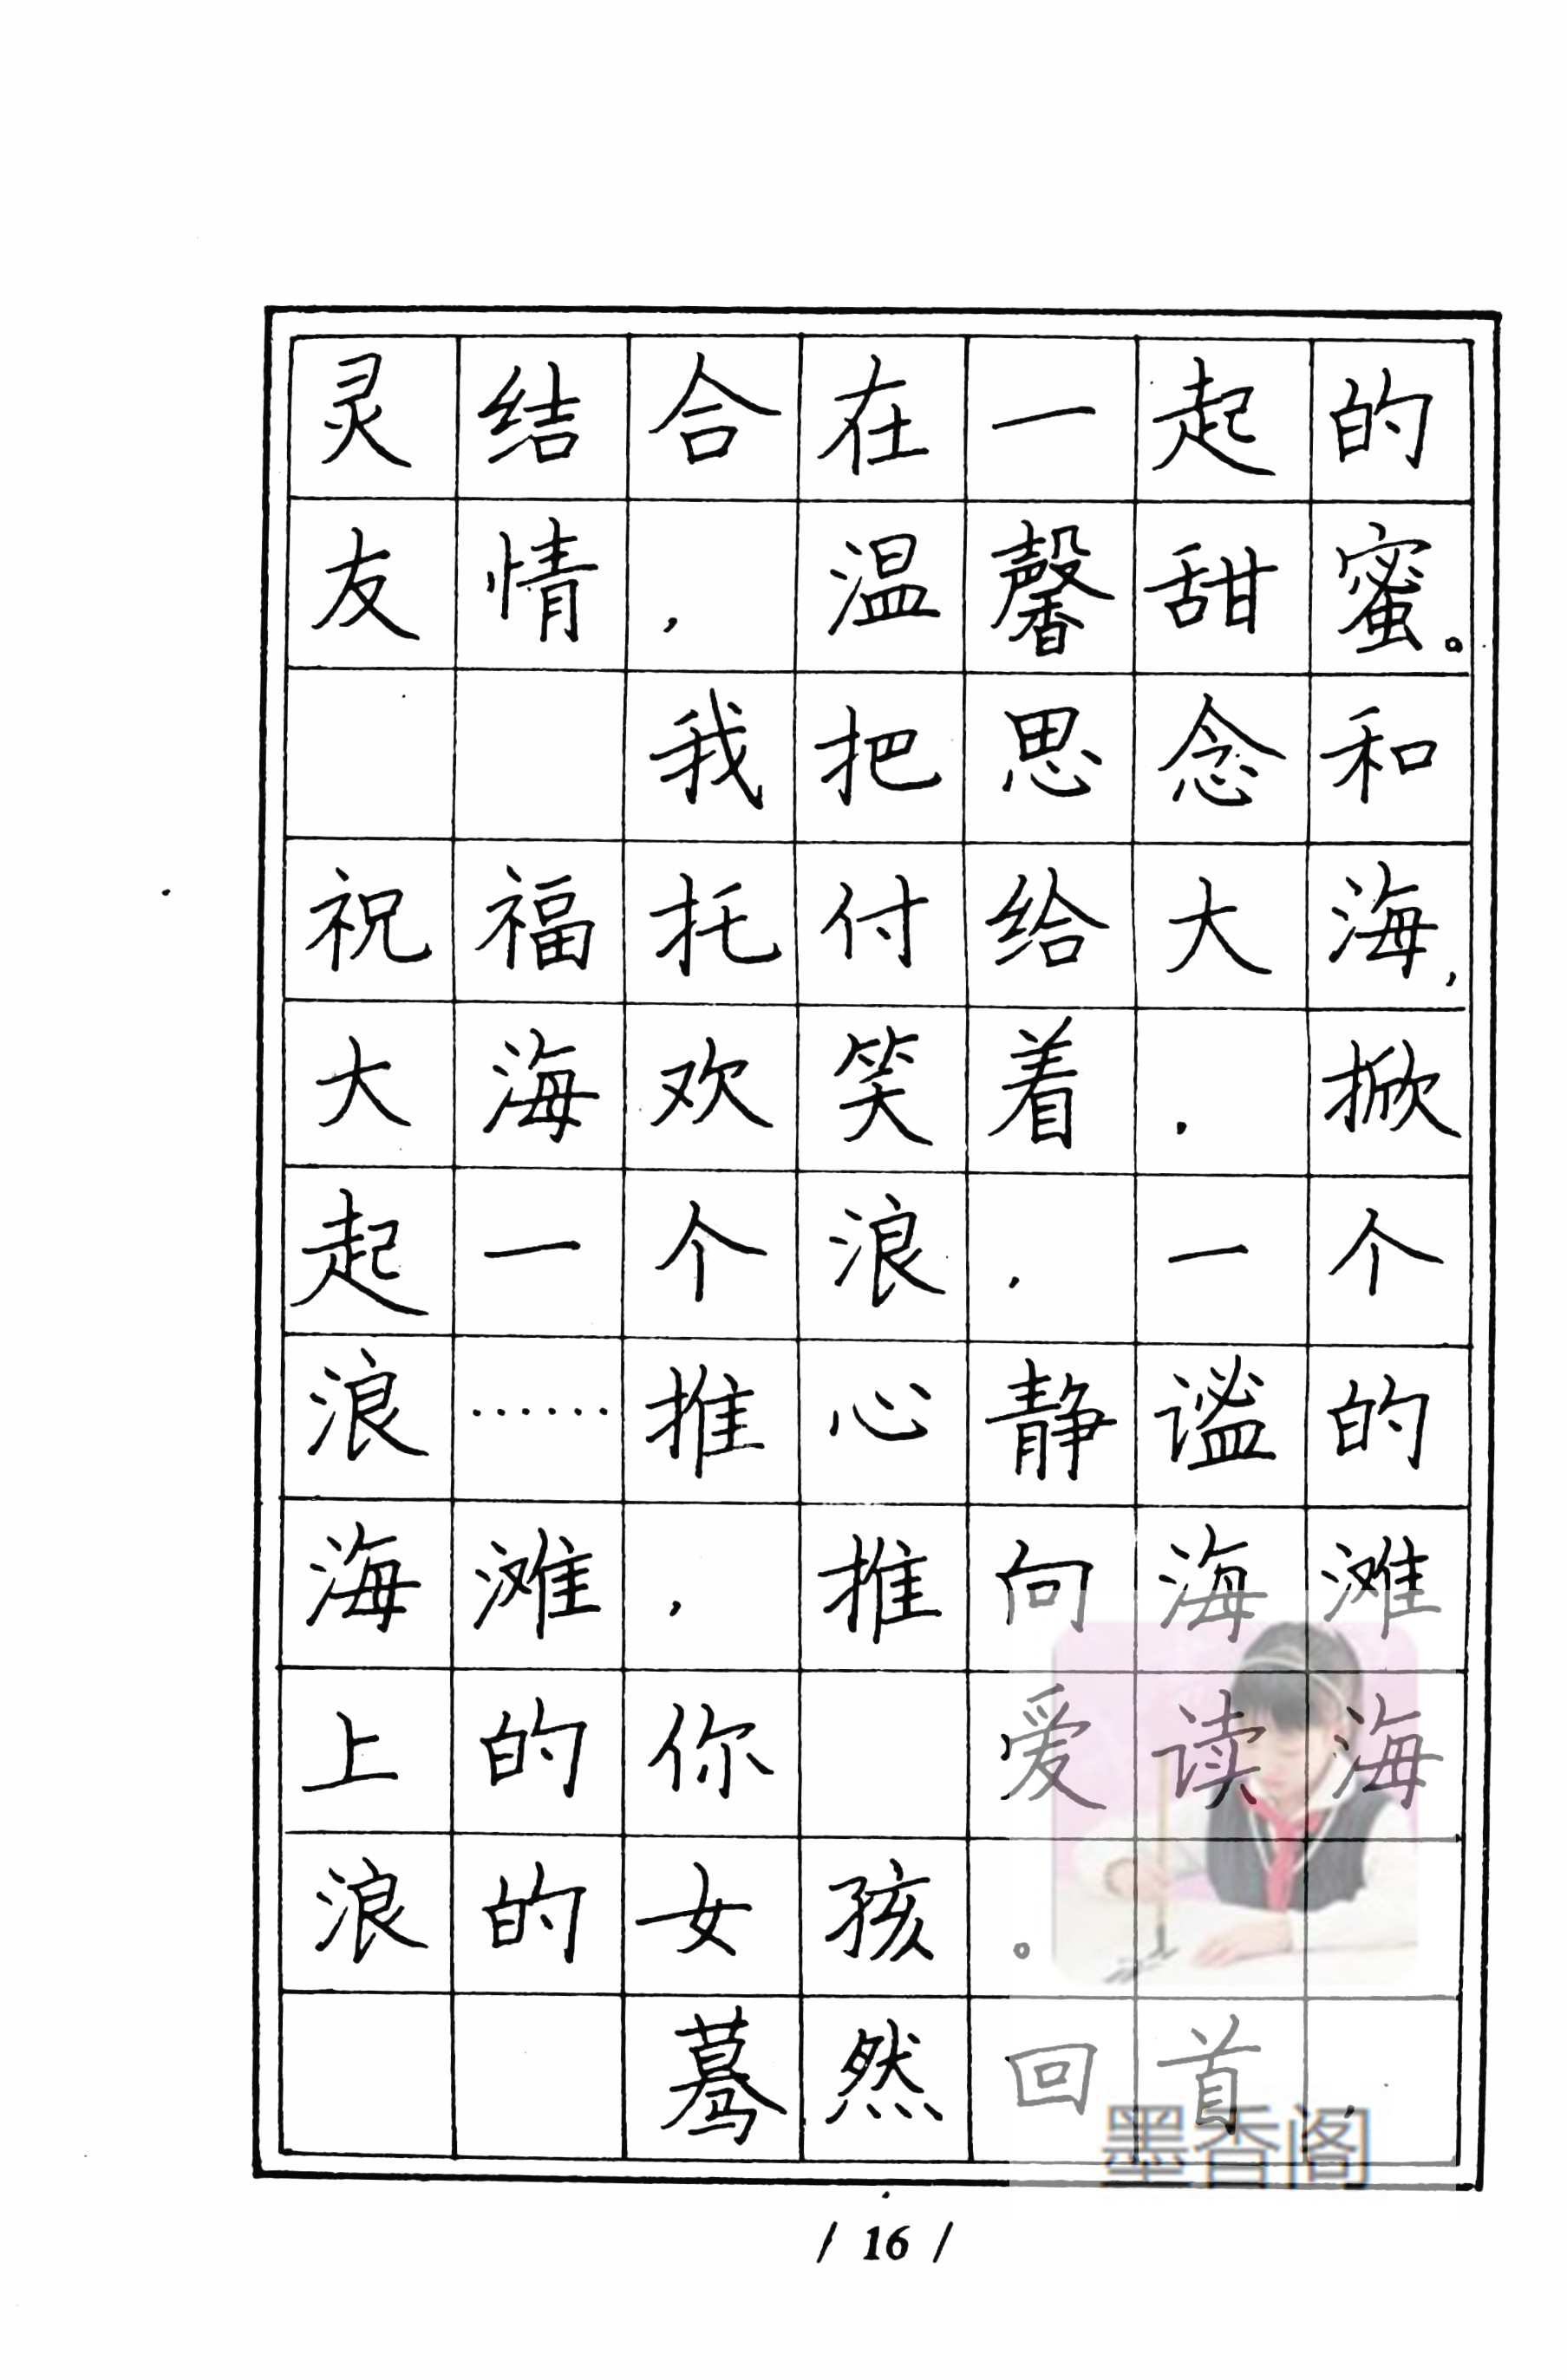 灵结合在一起的
友情，温馨甜蜜。
我把思念和
祝福托付给大海，
大海欢笑着，掀
起一个浪，一个
浪……推心静谧的
海滩，推向海滩
上的你 爱读海
浪的女孩。
蓦然回首，
墨香阁
/ 16 /